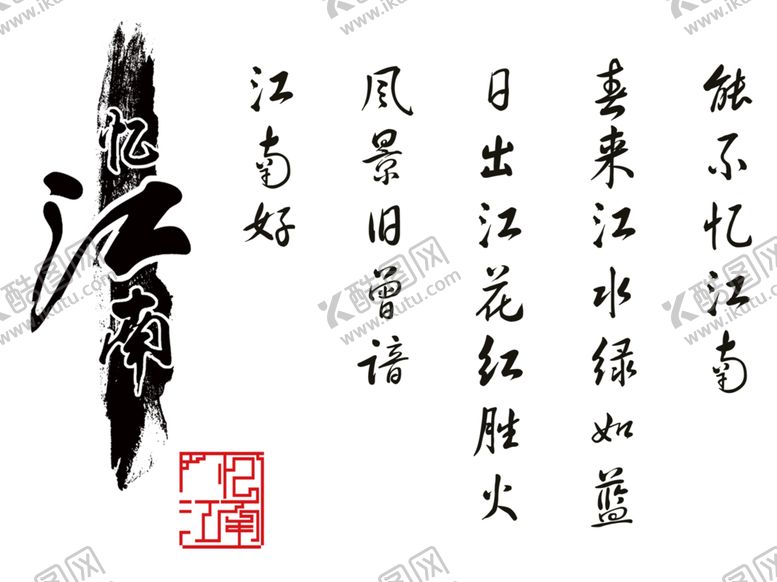 忆江南
江南好
风景旧曾谙
日出江花红胜火
春来江水绿如蓝
能不忆江南
忆江南
酷图网
www.ikutu.com